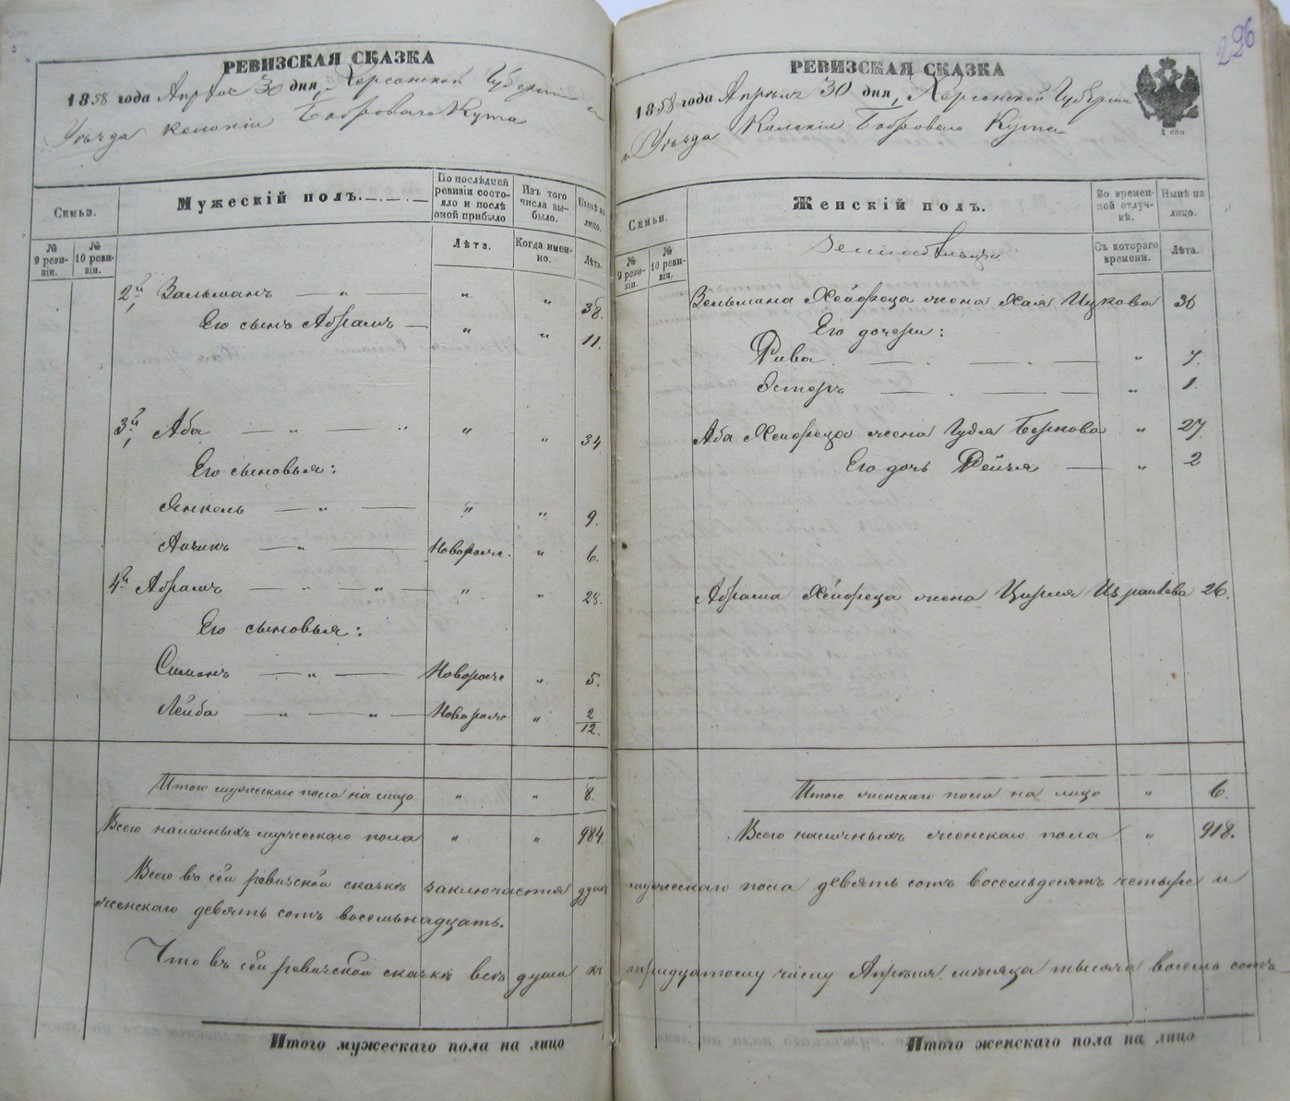 296
РЕВИЗСКАЯ СКАЗКА
1858 года Апреля 30 дня, Херсонской Губерніи и
Уѣзда колоніи Бобровагo Кута
Семьи.
Мужескій полъ.
По послѣдней ревизіи состояло и послѣ оной прибыло
Изъ того числа выбыло.
Нынѣ на лицо.
№ 9 ревизіи.
№ 10 ревизіи.
Лѣта.
Когда именно.
Лѣта.
2й Зельманъ — „ — „ „ 38.
Его сынъ Абрамъ — „ „ 11.
3й Аба — „ — „ „ „ 34
Его сыновья:
Янкель — „ — „ „ 9.
Аичикъ — „ — Новорожд. „ 6.
4й Абрамъ — „ — „ — „ „ 28.
Его сыновья:
Симонъ — „ — Новорожд „ 5.
Лейба — „ — „ — Новорожд „ 2/12.
Итого мужескаго пола на лицо „ „ 8.
Всего наличныхъ мужескаго пола „ „ 984
РЕВИЗСКАЯ СКАЗКА
1858 года Апрѣля 30 дня, Херсонской Губерніи
и Уѣзда Колоніи Боброваго Кута
Семьи.
Женскій полъ.
Во временной отлучкѣ.
Нынѣ на лицо.
№ 9 ревизіи.
№ 10 ревизіи.
Съ котораго времени.
Лѣта.
Зельмана Хейфеца жена Хая Ицкова 36
Его дочери:
Рива — — — „ 7.
Эстеръ — — „ 1.
Аба Хейфеца жена Гудя Беркова „ 27.
Его дочь Рейзя — „ 2
Абрама Хейфеца жена Цирля Израилева 26.
Итого женскаго пола на лицо „ 6.
Всего наличныхъ женскаго пола „ 918.
Всего въ сей ревизской сказкѣ заключается душъ мужескаго пола девять сотъ восемьдесятъ четыре и
женскаго девять сотъ восемьнадцать.
Что въ сей ревизской сказкѣ всѣ души къ тридцатому числу Апрѣля мѣсяца тысяча восемь сотъ
Итого мужескаго пола на лицо
Итого женскаго пола на лицо